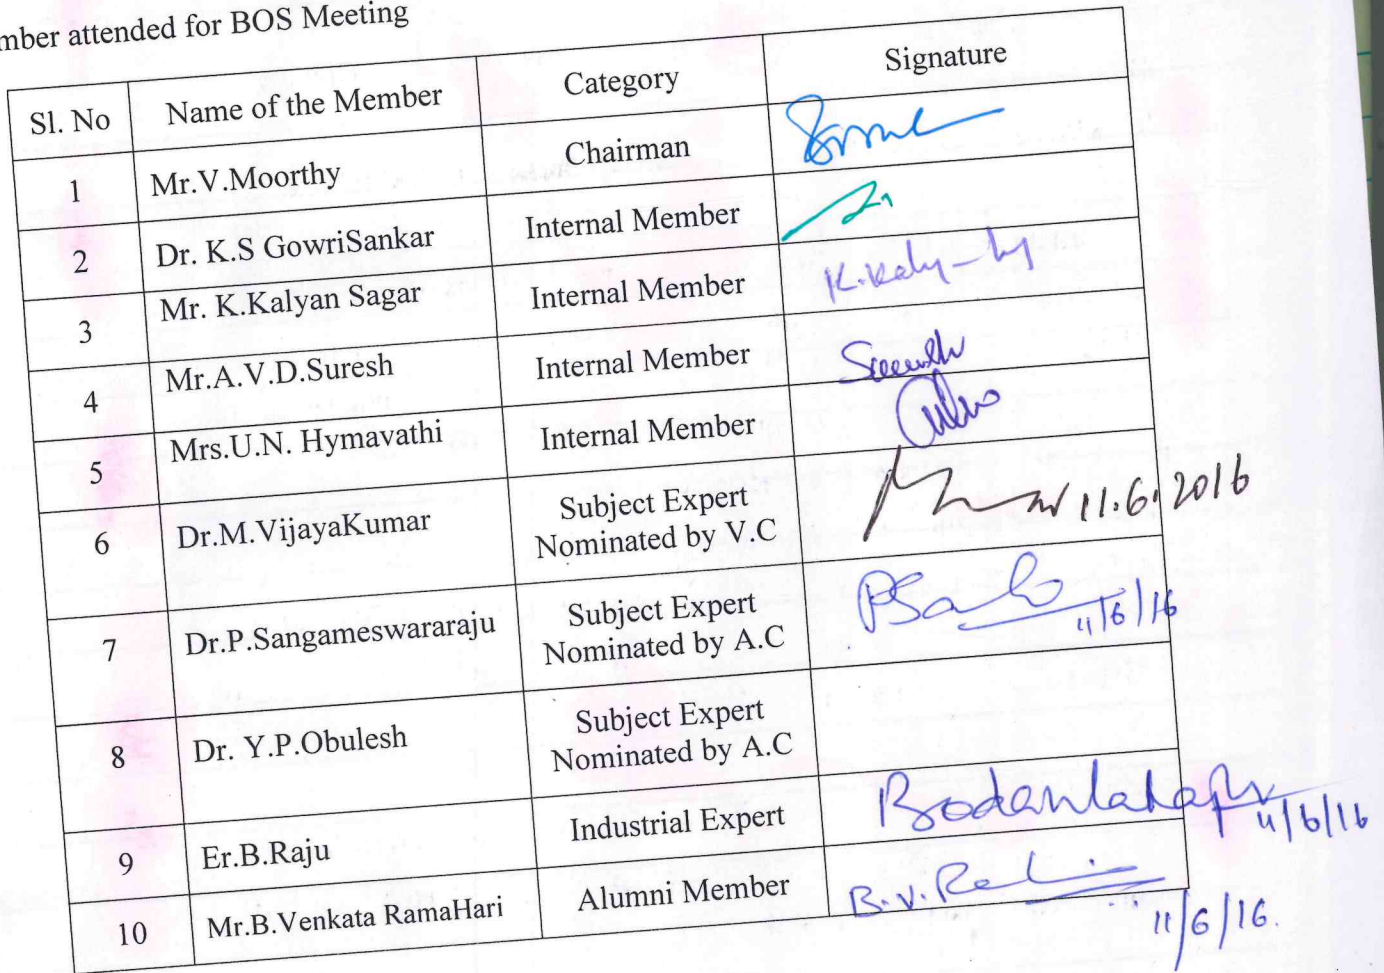 mber attended for BOS Meeting
Sl. No Name of the Member Category Signature
1 Mr.V.Moorthy Chairman
2 Dr. K.S GowriSankar Internal Member
3 Mr. K.Kalyan Sagar Internal Member K.Kaly
4 Mr.A.V.D.Suresh Internal Member
5 Mrs.U.N. Hymavathi Internal Member
6 Dr.M.VijayaKumar Subject Expert
Nominated by V.C 11.6.2016
7 Dr.P.Sangameswararaju Subject Expert
Nominated by A.C 11/6/16
8 Dr. Y.P.Obulesh Subject Expert
Nominated by A.C
9 Er.B.Raju Industrial Expert 11/6/16
10 Mr.B.Venkata RamaHari Alumni Member B.V.
11/6/16.